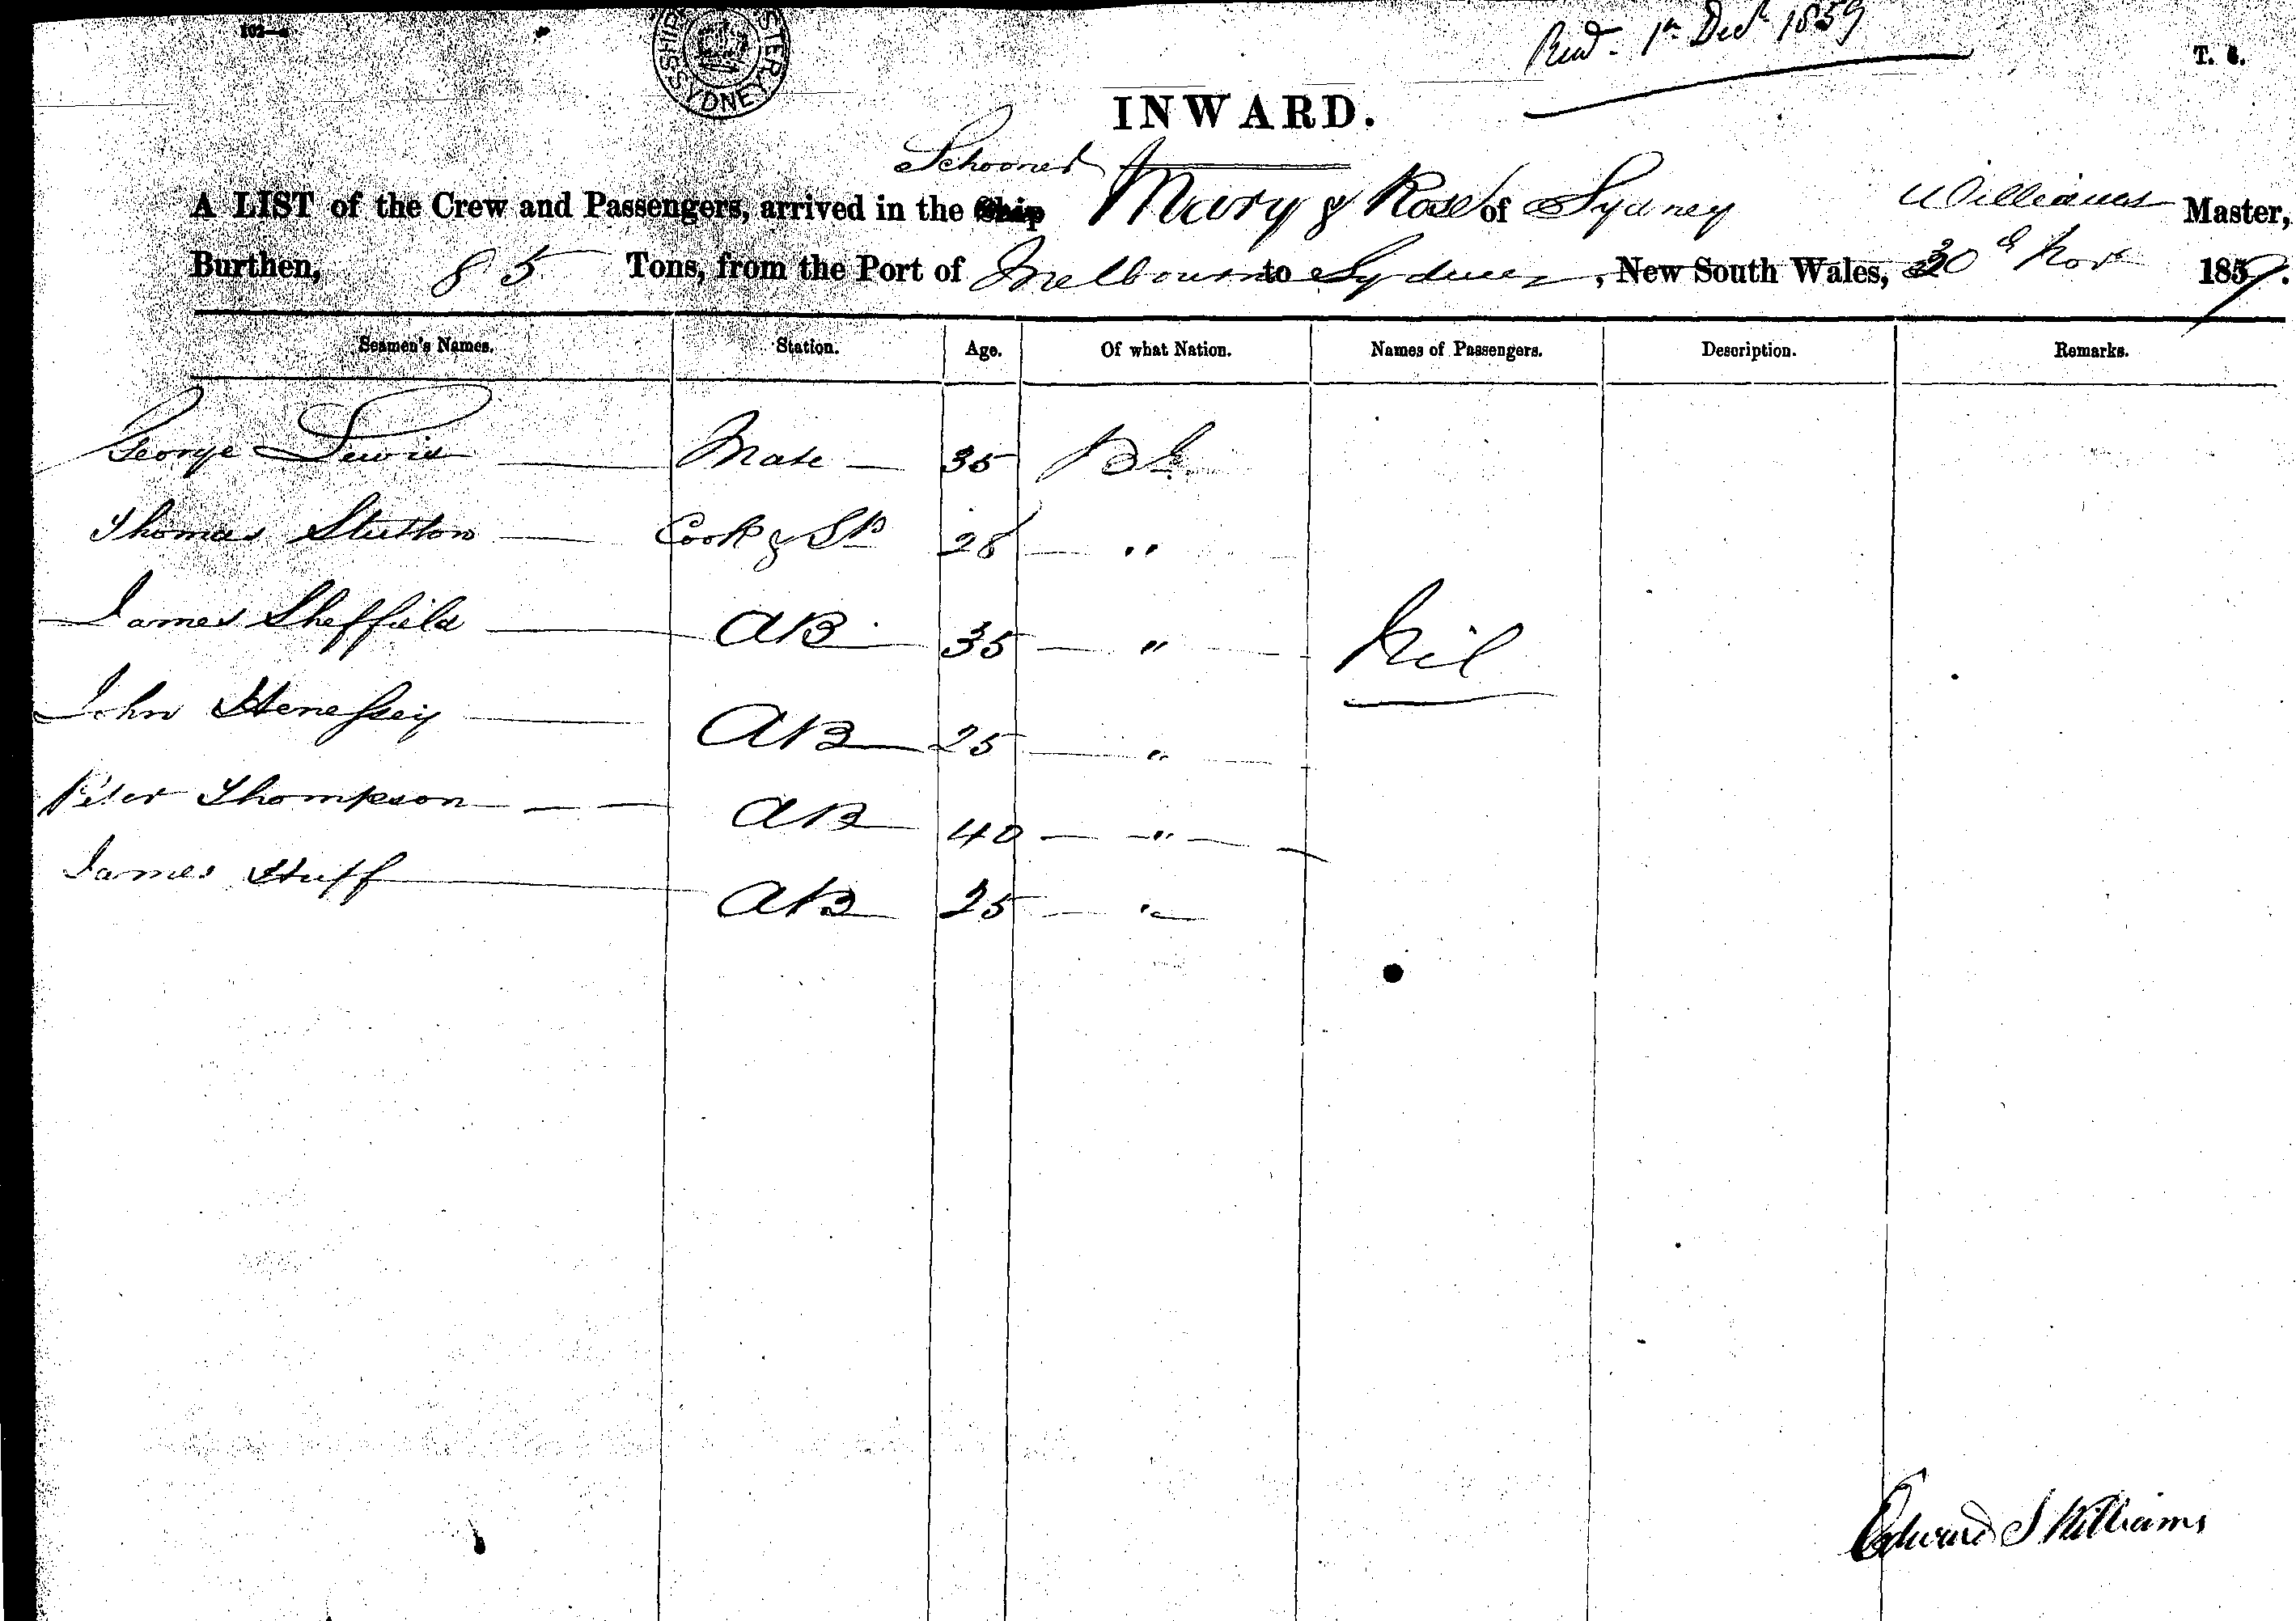 SHIP STER SYDNEY
Recd. 1st Decr 1859
T. 6.
INWARD.
Schooner
A LIST of the Crew and Passengers, arrived in the Ship Mary & Rose of Sydney Williams Master,
Burthen, 85 Tons, from the Port of Melbourne to Sydney, New South Wales, 30th Novr 1859.
Seamen's Names. Station. Age. Of what Nation. Names of Passengers. Description. Remarks.
George Lewis Mate 35
Thomas Stutton Cook & St 28 "
James Sheffield AB 35 " Nil
John Henessey AB 25 "
Peter Thompson AB 40 "
James Huff AB 25 "
Edward J Williams